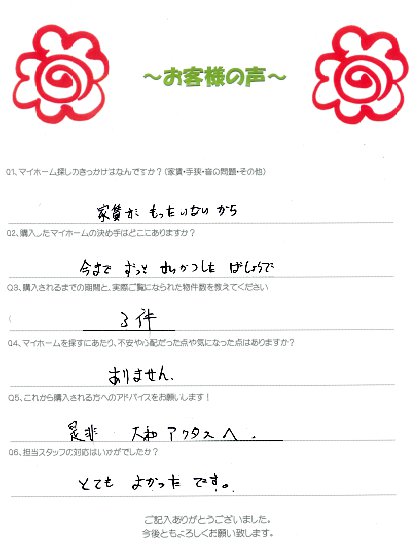 ～お客様の声～
Q1、マイホーム探しのきっかけはなんですか？(家賃・手狭・音の問題・その他)
家賃が もったいないから
Q2、購入したマイホームの決め手はどこにありますか？
今まで ずっと せいかつした ばしょで
Q3、購入されるまでの期間と、実際ご覧になられた物件数を教えてください
(
3件
Q4、マイホームを探すにあたり、不安や心配だった点や気になった点はありますか？
ありません、
Q5、これから購入される方へのアドバイスをお願いします！
是非 大和アクタスへ.
Q6、担当スタッフの対応はいかがでしたか？
とても よかった です。
ご記入ありがとうございました。
今後ともよろしくお願い致します。